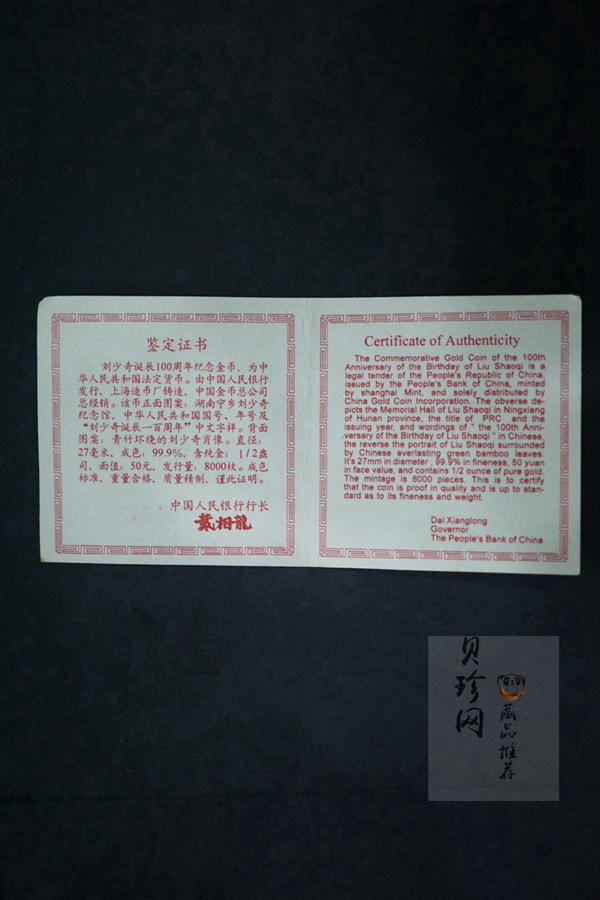 鉴定证书
刘少奇诞辰100周年纪念金币、为中
华人民共和国法定货币。由中国人民银行
发行、上海造币厂铸造、中国金币总公司
总经销。该币正面图案：湖南宁乡刘少奇
纪念馆，中华人民共和国国号、年号及
“刘少奇诞辰一百周年”中文字样。背面
图案：青竹环绕的刘少奇肖像。直径：
27毫米、成色：99.9%、含纯金：1/2盎
司、面值：50元、发行量：8000枚。成色
标准、重量合格、质量精制、谨此证明。
中国人民银行行长
戴相龍
Certificate of Authenticity
The Commemorative Gold Coin of the 100th
Anniversary of the Birthday of Liu Shaoqi is a
legal tender of the People's Republic of China,
issued by the People's Bank of China, minted
by shanghai Mint, and solely distributed by
China Gold Coin Incorporation. The obverse de-
picts the Memorial Hall of Liu Shaoqi in Ningxiang
of Hunan province, the title of PRC and the
issuing year, and wordings of " the 100th Anni-
versary of the Birthday of Liu Shaoqi " in Chinese,
the reverse the portrait of Liu Shaoqi surrounded
by Chinese everlasting green bamboo leaves.
It's 27mm in diameter , 99.9% in fineness, 50 yuan
in face value, and contains 1/2 ounce of pure gold.
The mintage is 8000 pieces. This is to certify
that the coin is proof in quality and is up to stan-
dard as to its fineness and weight.
Dai Xianglong
Governor
The People's Bank of China
贝珍网
藏品推荐